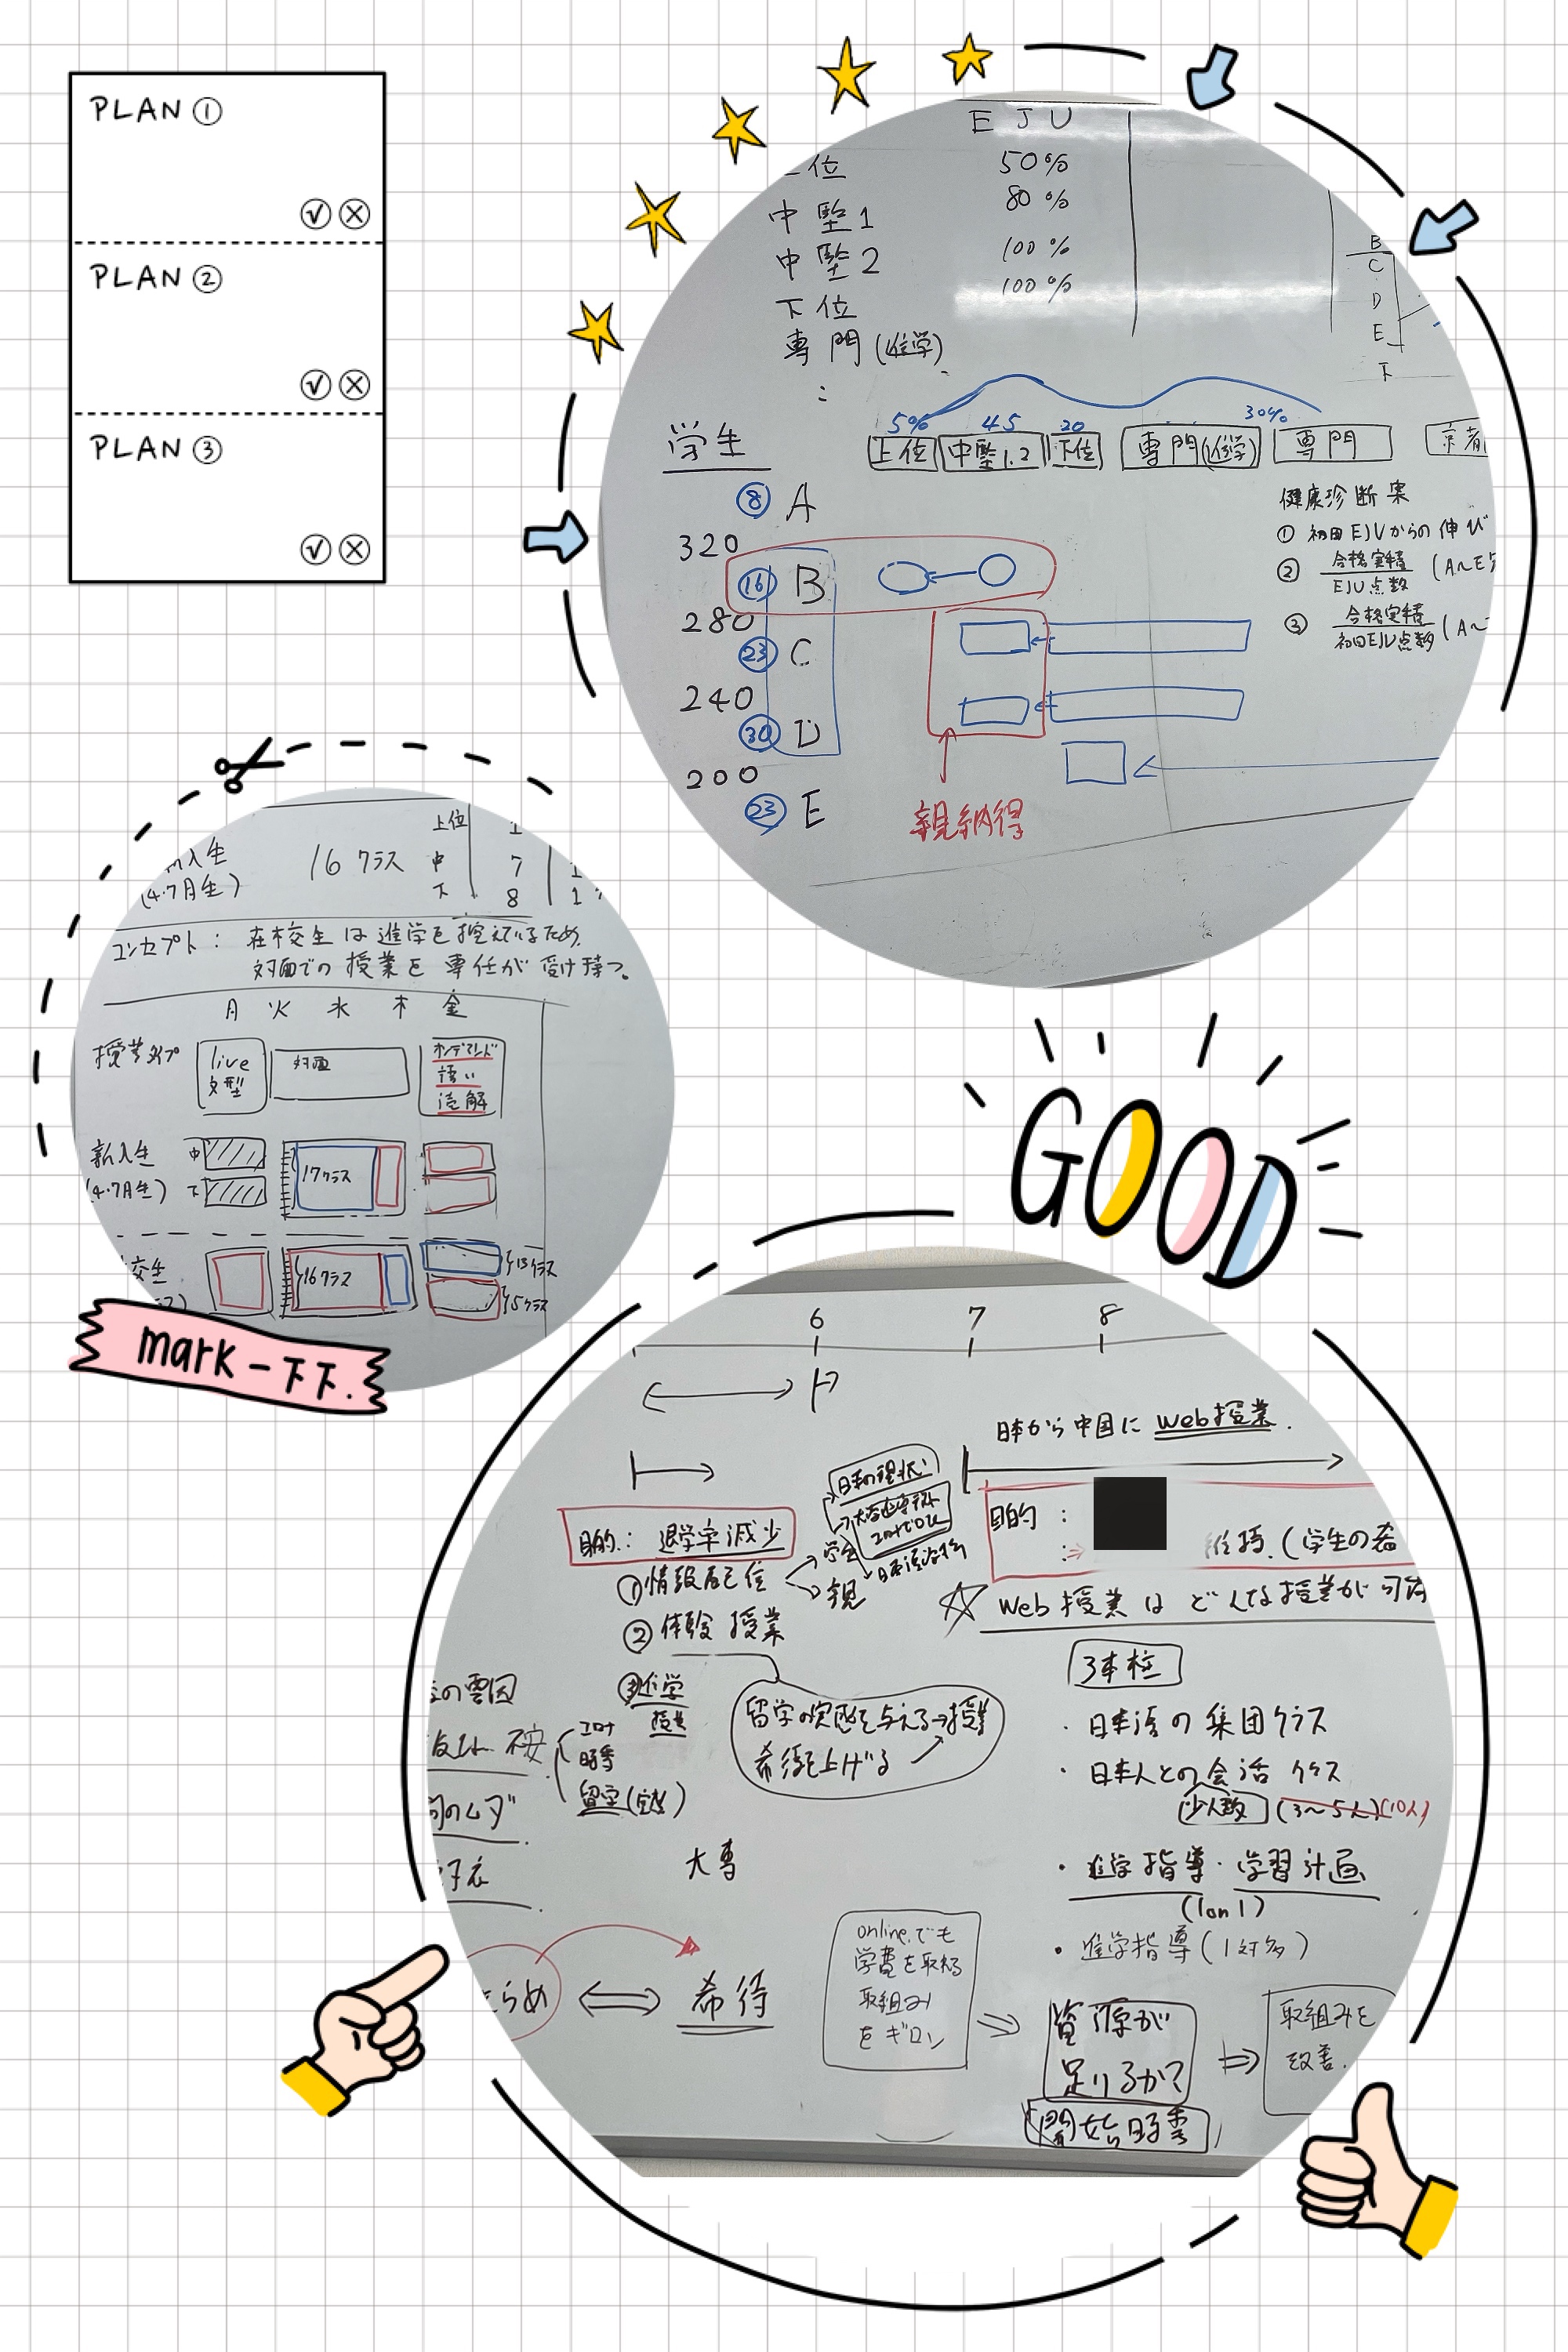 PLAN ①
PLAN ②
PLAN ③
EJU
位 50%
中堅1 80%
中堅2 100%
下位 100%
専門(進学)
B
C
D
E
下
学生
5% 45 20 30%
上位 中堅1.2 下位 専門(進学) 専門
⑧ A
320
⑯ B
280
㉓ C
240
㉚ D
200
㉓ E
親納得
健康診断案
① 初回EJUからの伸び
② 合格実績
EJU点数
(A~E
③ 合格実績
初回EJU点数
(A~
上位 1
入生 16クラス 中 7
(4.7月生) 下 8
コンセプト: 在校生は進学を控えているため、
対面での授業を専任が受け持つ。
月 火 水 木 金
授業タイプ live 文型 対面 オンデマンド
読解
新入生 中 17クラス
(4.7月生) 下
校生 16クラス 13クラス
5クラス
mark-下下.
GOOD
6 7 8
日本から中国にWeb授業.
目的: 退学率減少
①情報配信
学生
親
②体験授業
③進学
授業
日本の現状
目的:
維持.(学生の
Web授業はどんな授業が可
3本柱
・日本語の集団クラス
・日本人との会話クラス
少人数 (3~5人)(10人)
・進学指導・学習計画
(1on1)
・進学指導(1対多)
不安
コロナ
時季
留学の実感を与える→授業
希待を上げる
大専
らめ ⇔ 希待
online.でも
学費を取れる
取組み
をギロン
資源が
足りるか?
開始時季
取組みを
改善.